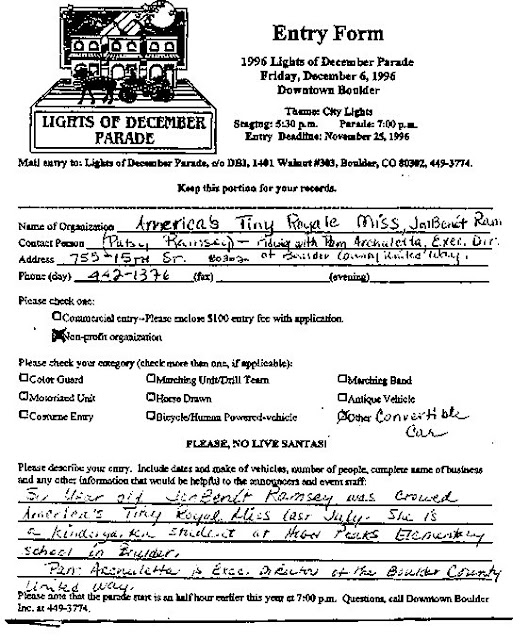 LIGHTS OF DECEMBER
PARADE
Entry Form
1996 Lights of December Parade
Friday, December 6, 1996
Downtown Boulder
Theme: City Lights
Staging: 5:30 p.m. Parade: 7:00 p.m.
Entry Deadline: November 25, 1996
Mail entry to: Lights of December Parade, c/o DBI, 1401 Walnut #303, Boulder, CO 80302, 449-3774.
Keep this portion for your records.
Name of Organization America's Tiny Royale Miss, JonBenét Ram
Contact Person (Patsy Ramsey) - riding with Pam Archuletta, Exec. Dir.
Address 755-15TH St. 80302 of Boulder County United Way.
Phone (day) 442-1376 (fax) (evening)
Please check one:
Commercial entry--Please enclose $100 entry fee with application.
Non-profit organization
Please check your category (check more than one, if applicable):
Color Guard Marching Unit/Drill Team Marching Band
Motorized Unit Horse Drawn Antique Vehicle
Costume Entry Bicycle/Human Powered-vehicle Other Convertible
Car
PLEASE, NO LIVE SANTAS!
Please describe your entry. Include dates and make of vehicles, number of people, complete name of business
and any other information that would be helpful to the announcers and event staff:
Six Year old JonBenét Ramsey was Crowed
America's Tiny Royal Miss last July. She is
a Kindergarten student at High Peaks Elementary
school in Boulder.
Pam Archuletta is Exec. Director of the Boulder County
United Way.
Please note that the parade start is an half hour earlier this year at 7:00 p.m. Questions, call Downtown Boulder
Inc. at 449-3774.